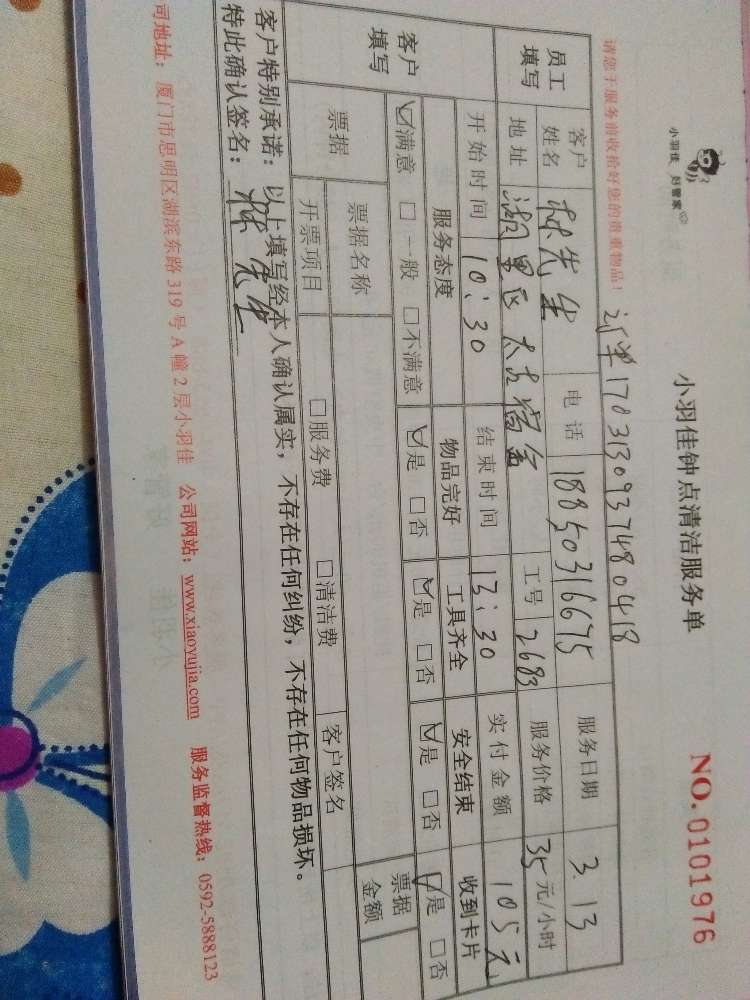 小羽佳 好管家
小羽佳钟点清洁服务单
NO.0101976
请您于服务前收拾好您的贵重物品！
订单1703130937480418
员工填写 客户姓名 林先生 电话 18850316675 服务日期 3.13
地址 湖里区 工号 2683 服务价格 35元/小时
开始时间 10:30 结束时间 13:30 实付金额 105元
客户填写 服务态度 物品完好 工具齐全 安全结束 收到卡片
☑满意 □一般 □不满意 ☑是 □否 ☑是 □否 ☑是 □否 ☑是 □否
票据 票据名称 票据金额
开票项目 □服务费 □清洁费 客户签名
客户特别承诺：以上填写经本人确认属实，不存在任何纠纷，不存在任何物品损坏。
特此确认签名：林先生
司地址：厦门市思明区湖滨东路319号A幢2层小羽佳 公司网站：www.xiaoyujia.com 服务监督热线：0592-5888123